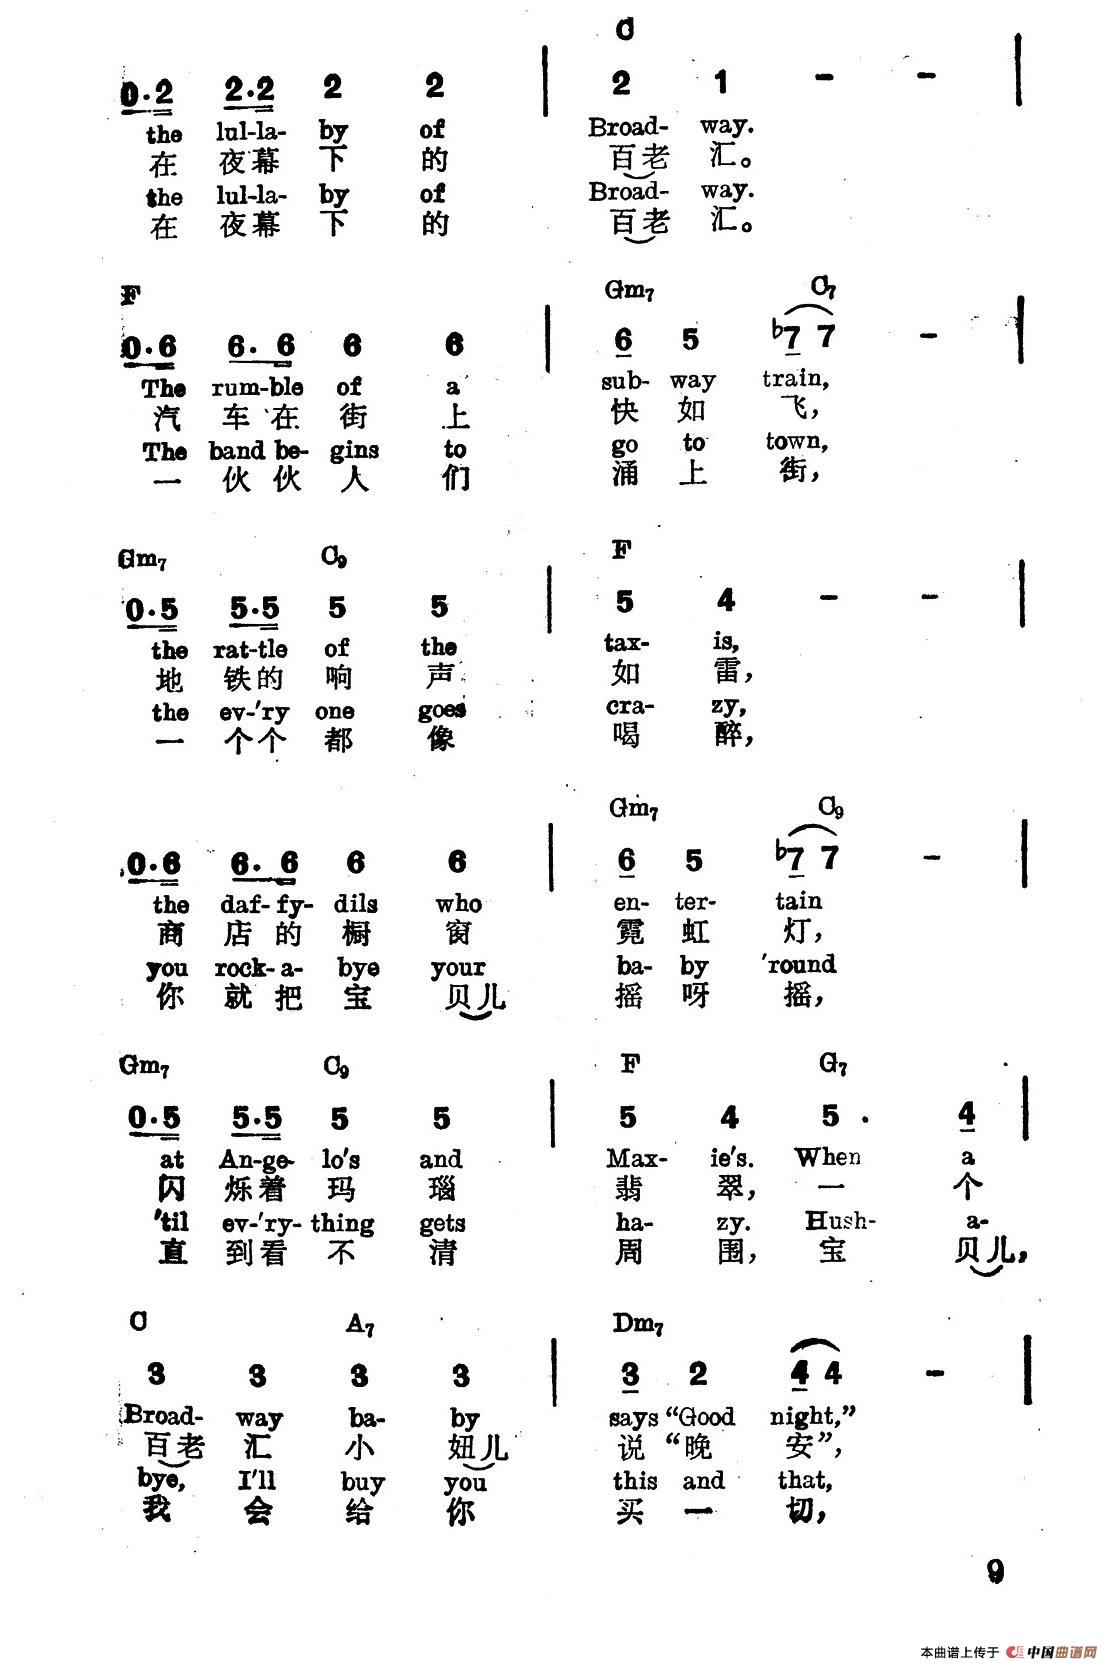 C
0·2 2·2 2 2 | 2 1 - - |
the lul-la- by of Broad- way.
在 夜幕 下 的 百老 汇。
the lul-la- by of Broad- way.
在 夜幕 下 的 百老 汇。
F Gm7 C7
0·6 6· 6 6 6 | 6 5 ♭7 7 - |
The rum-ble of a sub- way train,
汽 车 在 街 上 快 如 飞,
The band be- gins to go to town,
一 伙 伙 人 们 涌 上 街,
Gm7 C9 F
0·5 5·5 5 5 | 5 4 - - |
the rat-tle of the tax- is,
地 铁的 响 声 如 雷,
the ev-'ry one goes cra- zy,
一 个个 都 像 喝 醉,
Gm7 C9
0·6 6· 6 6 6 | 6 5 ♭7 7 - |
the daf- fy- dils who en- ter- tain
商 店 的 橱 窗 霓 虹 灯,
you rock- a- bye your ba- by 'round
你 就 把 宝 贝儿 摇 呀 摇,
Gm7 C9 F G7
0·5 5·5 5 5 | 5 4 5 · 4 |
at An-ge- lo's and Max- ie's. When a
闪 烁着 玛 瑙 翡 翠, 一 个
'til ev-'ry- thing gets ha- zy. Hush- a-
直 到看 不 清 周 围, 宝 贝儿,
C A7 Dm7
3 3 3 3 | 3 2 4 4 - |
Broad- way ba- by says “Good night,”
百老 汇 小 妞儿 说 “晚 安”,
bye, I'll buy you this and that,
我 会 给 你 买 一 切,
9
本曲谱上传于 中国曲谱网